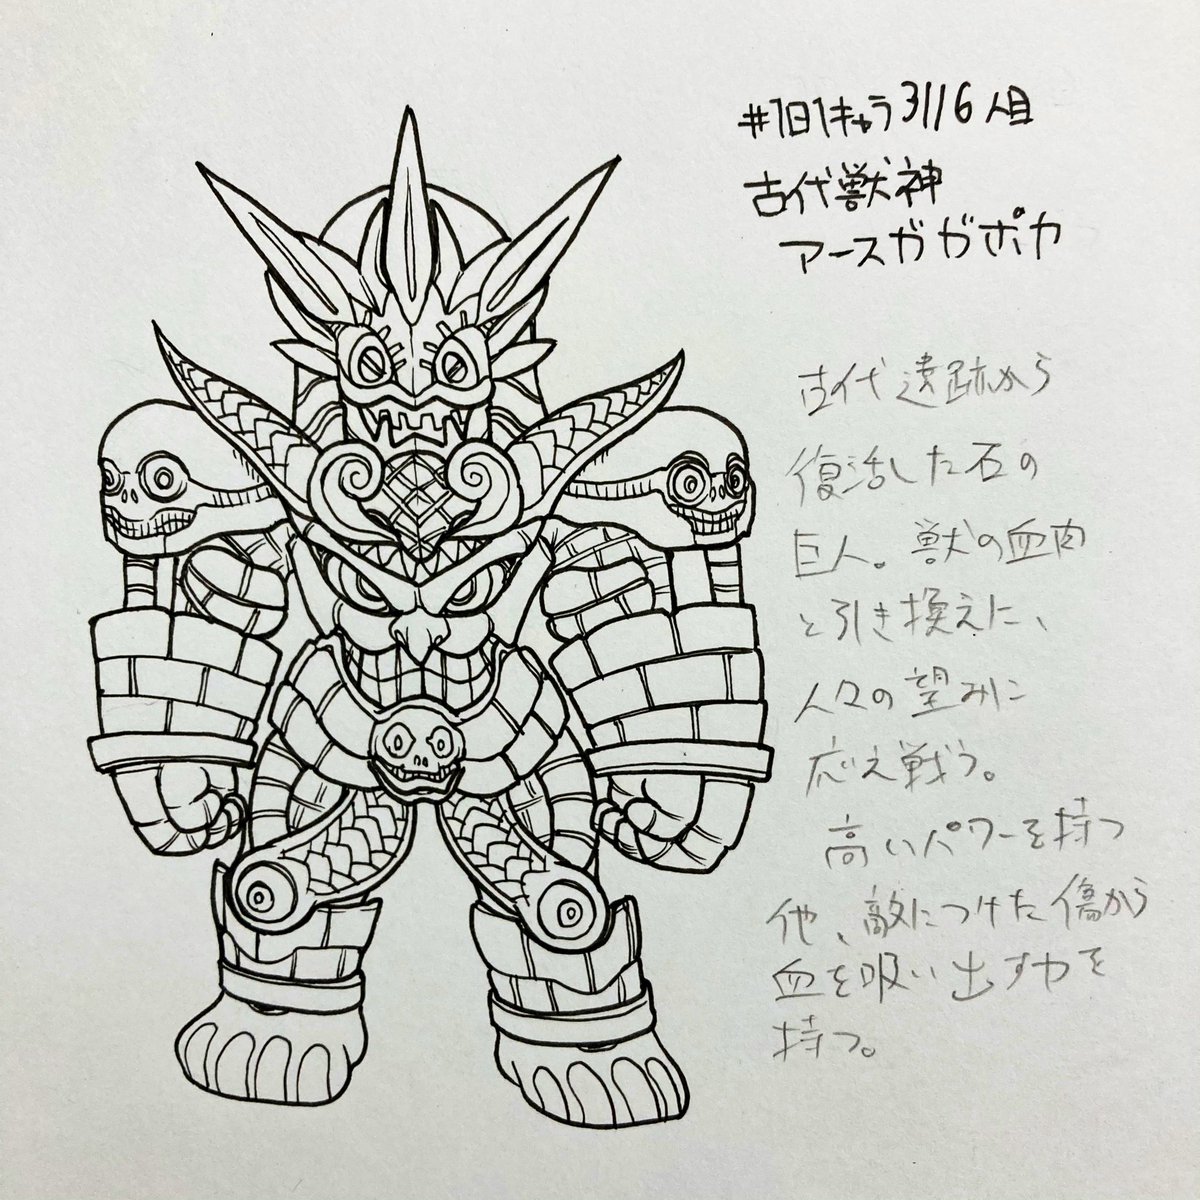 #1日1キャラ3116人目
古代獣神
アースガガポカ
古代遺跡から
復活した石の
巨人。獣の血肉
と引き換えに、
人々の望みに
応え戦う。
高いパワーを持つ
他、敵につけた傷から
血を吸い出す力を
持つ。